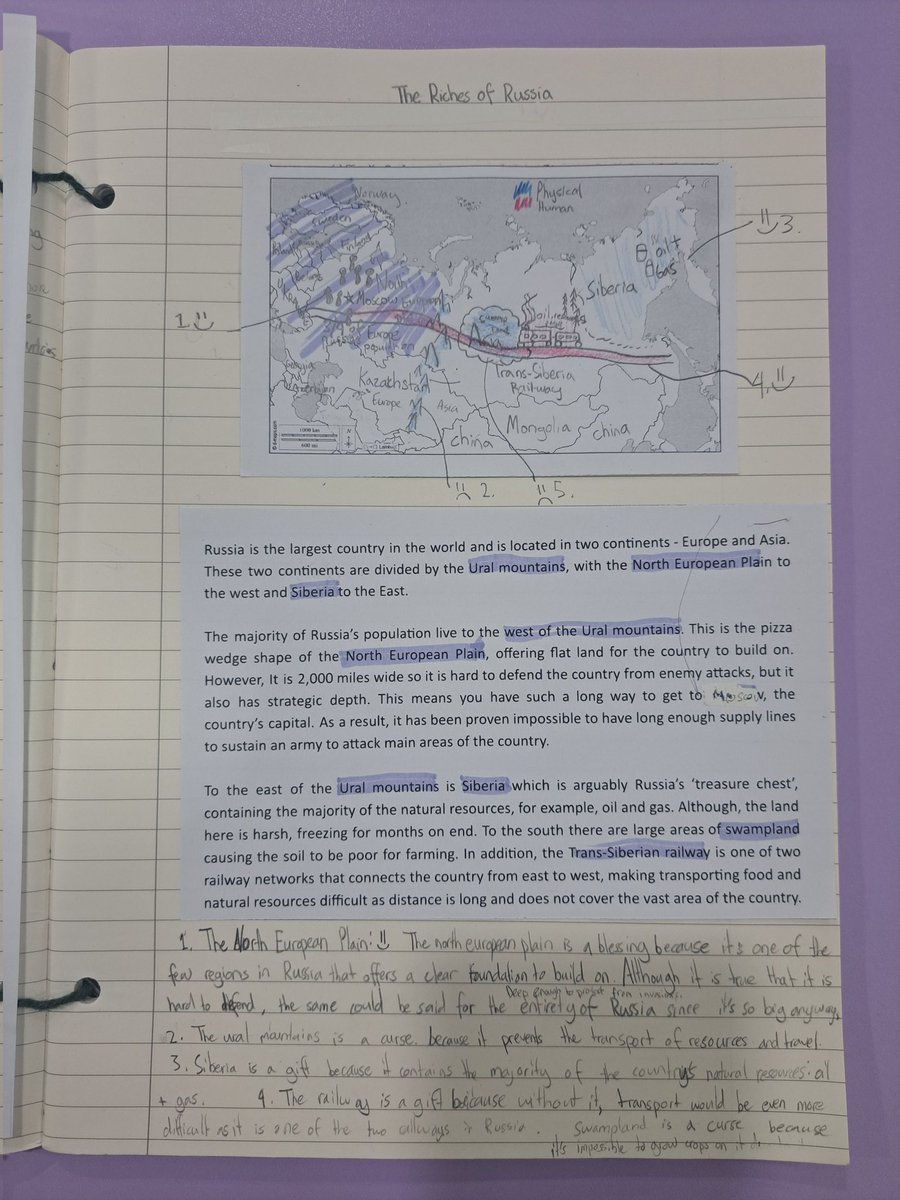 The Riches of Russia
Norway
Sweden
Finland
Physical
Human
3.
oil +
Gas
Siberia
North
Moscow European
1.
Europe
population
Asia
Trans-Siberia
Railway
4.
Kazakhstan
Europe
Asia
Mongolia
china
china
1000 km
600 mi
2.
5.
Russia is the largest country in the world and is located in two continents - Europe and Asia.
These two continents are divided by the Ural mountains, with the North European Plain to
the west and Siberia to the East.
The majority of Russia's population live to the west of the Ural mountains. This is the pizza
wedge shape of the North European Plain, offering flat land for the country to build on.
However, It is 2,000 miles wide so it is hard to defend the country from enemy attacks, but it
also has strategic depth. This means you have such a long way to get to Moscow, the
country's capital. As a result, it has been proven impossible to have long enough supply lines
to sustain an army to attack main areas of the country.
To the east of the Ural mountains is Siberia which is arguably Russia's 'treasure chest',
containing the majority of the natural resources, for example, oil and gas. Although, the land
here is harsh, freezing for months on end. To the south there are large areas of swampland
causing the soil to be poor for farming. In addition, the Trans-Siberian railway is one of two
railway networks that connects the country from east to west, making transporting food and
natural resources difficult as distance is long and does not cover the vast area of the country.
1. The North European Plain: The north european plain is a blessing because it's one of the
few regions in Russia that offers a clear foundation to build on. Although it is true that it is
Deep enough to protect from invasion.
hard to defend, the same could be said for the entirety of Russia since it's so big anyway.
2. The ural mountains is a curse. because it prevents the transport of resources and travel.
3. Siberia is a gift because it contains the majority of the country's natural resources: oil
+ gas. 4. The railway is a gift because without it, transport would be even more
difficult as it is one of the two railways in Russia. Swampland is a curse because
it's impossible to grow crops on it